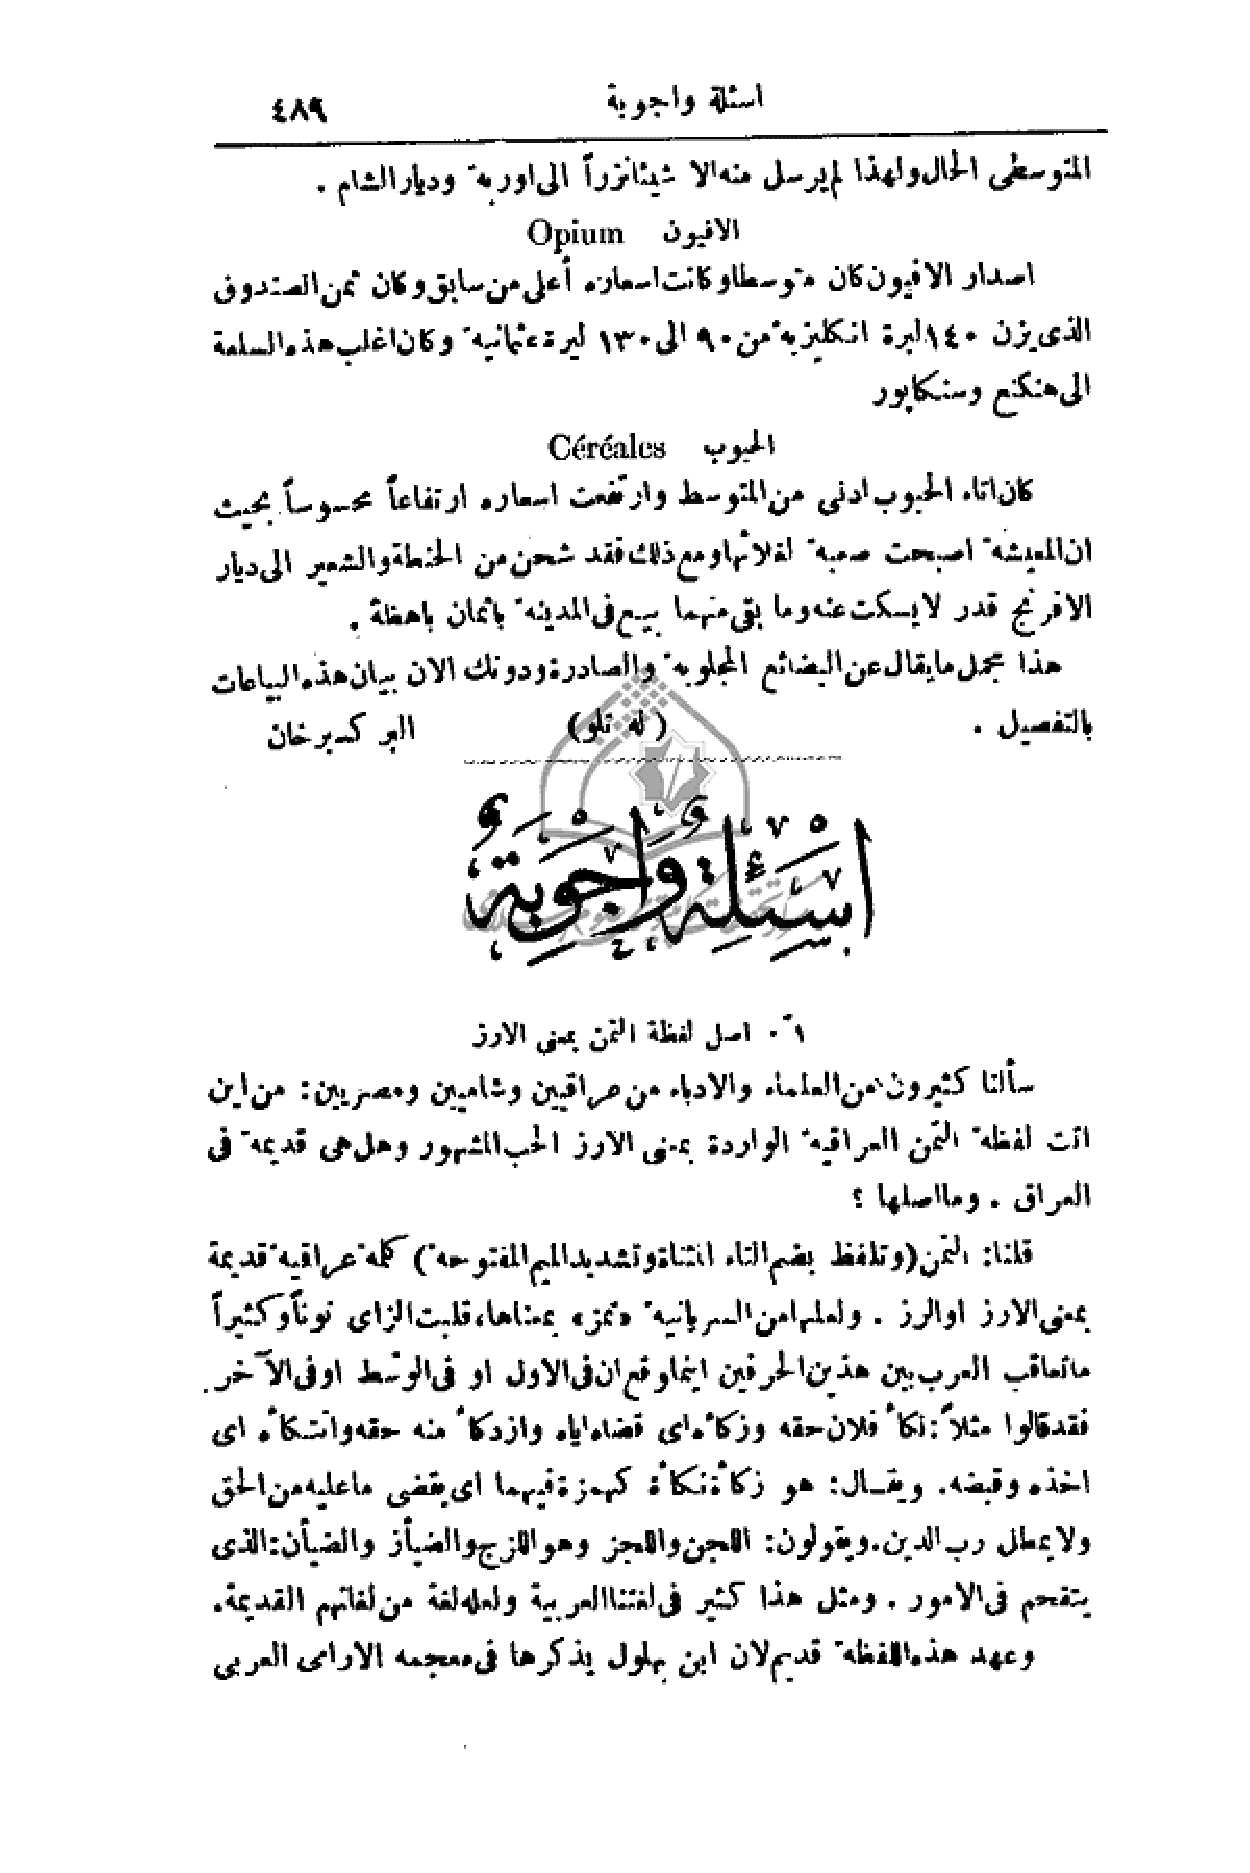 اسئلة واجوبة ٤٨٩
المتوسطي الحال ولهذا لم يرسل منه الا شيئا نزراً الى اوربة وديار الشام .
الافيون Opium
اصدار الافيون كان متوسطا وكانت اسعاره أعلى من سابق وكان ثمن الصندوق
الذى يزن ١٤٠ لبرة انكليزية من ٩٠ الى ١٣٠ ليرة عثمانية وكان اغلب هذه السلعة
الى هنكنع وسنكابور
الحبوب Céréales
كان اتاء الحبوب ادنى من المتوسط وارتفعت اسعاره ارتفاعاً محسوساً بحيث
ان المعيشة اصبحت صعبة لغلائها ومع ذلك فقد شحن من الحنطة والشعير الى ديار
الافرنج قدر لا يسكت عنه وما بقى منهما بيع فى المدينة باثمان باهظة .
هذا مجمل ما يقال عن البضائع المجلوبة والصادرة ودونك الان بيان هذه البياعات
بالتفصيل . ( له تلو ) البر كسبرخان
اَسْئِلَة وَاَجْوِبَة
١ . اصل لفظة التمن بمعنى الارز
سألنا كثيرون من العلماء والادباء من عراقيين وشاميين ومصريين : من اين
اتت لفظة التمن العراقية الواردة بمعنى الارز الحب المشهور وهل هى قديمة فى
العراق . وما اصلها ؟
قلنا : التمن ( وتلفظ بضم التاء المثناة وتشديد الميم المفتوحة ) كلمة عراقية قديمة
بمعنى الارز او الرز . ولعلها من السريانية « تمز » بمعناها ، قلبت الزاى نوناً وكثيراً
ما تعاقب العرب بين هذين الحرفين اينما وقعا ان فى الاول او فى الوسط او فى الآخر .
فقد قالوا مثلاً : نكأ فلان حقه وزكأه اى قضاه اياه وازدكأ منه حقه وانتكأه اى
اخذه وقبضه . ويقــال : هو زكأة نكأة كهمزة فيهما اى يقضى ما عليه من الحق
ولا يمطل رب الدين . ويقولون : اللجن واللجز وهو اللزج والضيأز والضيأن : الذى
يتقحم فى الامور . ومثل هذا كثير فى لغتنا العربية ولعله لغة من لغاتهم القديمة .
وعهد هذه اللفظة قديم لان ابن بهلول يذكرها فى معجمه الارامى العربى